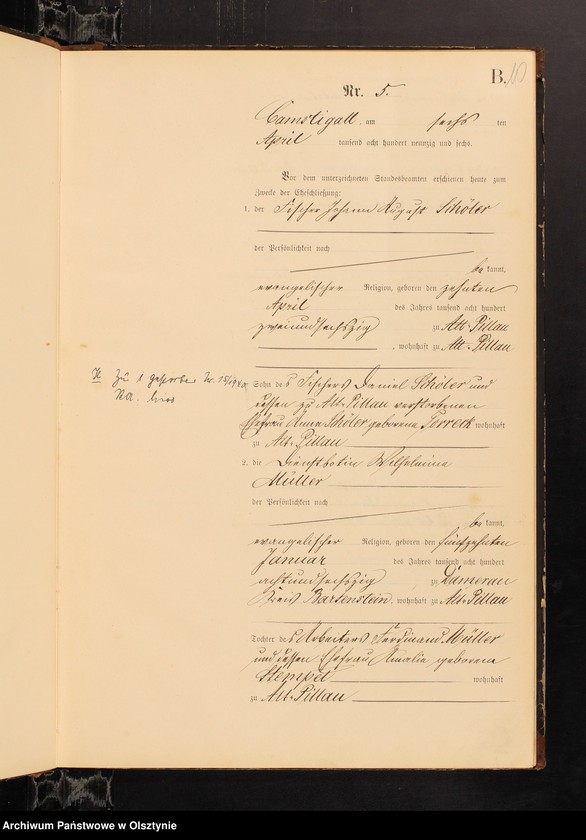 B.
Nr. 5.
Camstigall, am sechsten
April tausend acht hundert neunzig und sechs.
Vor dem unterzeichneten Standesbeamten erschienen heute zum
Zwecke der Eheschließung:
1. der Fischer Johann August Schöler
der Persönlichkeit nach
bekannt,
evangelischer Religion, geboren den zehnten
April des Jahres tausend acht hundert
zweiundsechszig zu Alt-Pillau
, wohnhaft zu Alt-Pillau
H Zu 1 gestorben Nr. 15/
Sohn des Fischers Daniel Schöler und
dessen zu Alt-Pillau verstorbenen
Ehefrau Anna Schöler geborene Terreck wohnhaft
zu Alt-Pillau
2. die Dienstbotin Wilhelmine
Müller
der Persönlichkeit nach
bekannt,
evangelischer Religion, geboren den fünfzehnten
Januar des Jahres tausend acht hundert
achtundsechszig zu Damerau
Kreis Bartenstein, wohnhaft zu Alt-Pillau
Tochter des Arbeiters Ferdinand Müller
und dessen Ehefrau Amalie geborene
Stempel wohnhaft
zu Alt-Pillau
Archiwum Państwowe w Olsztynie